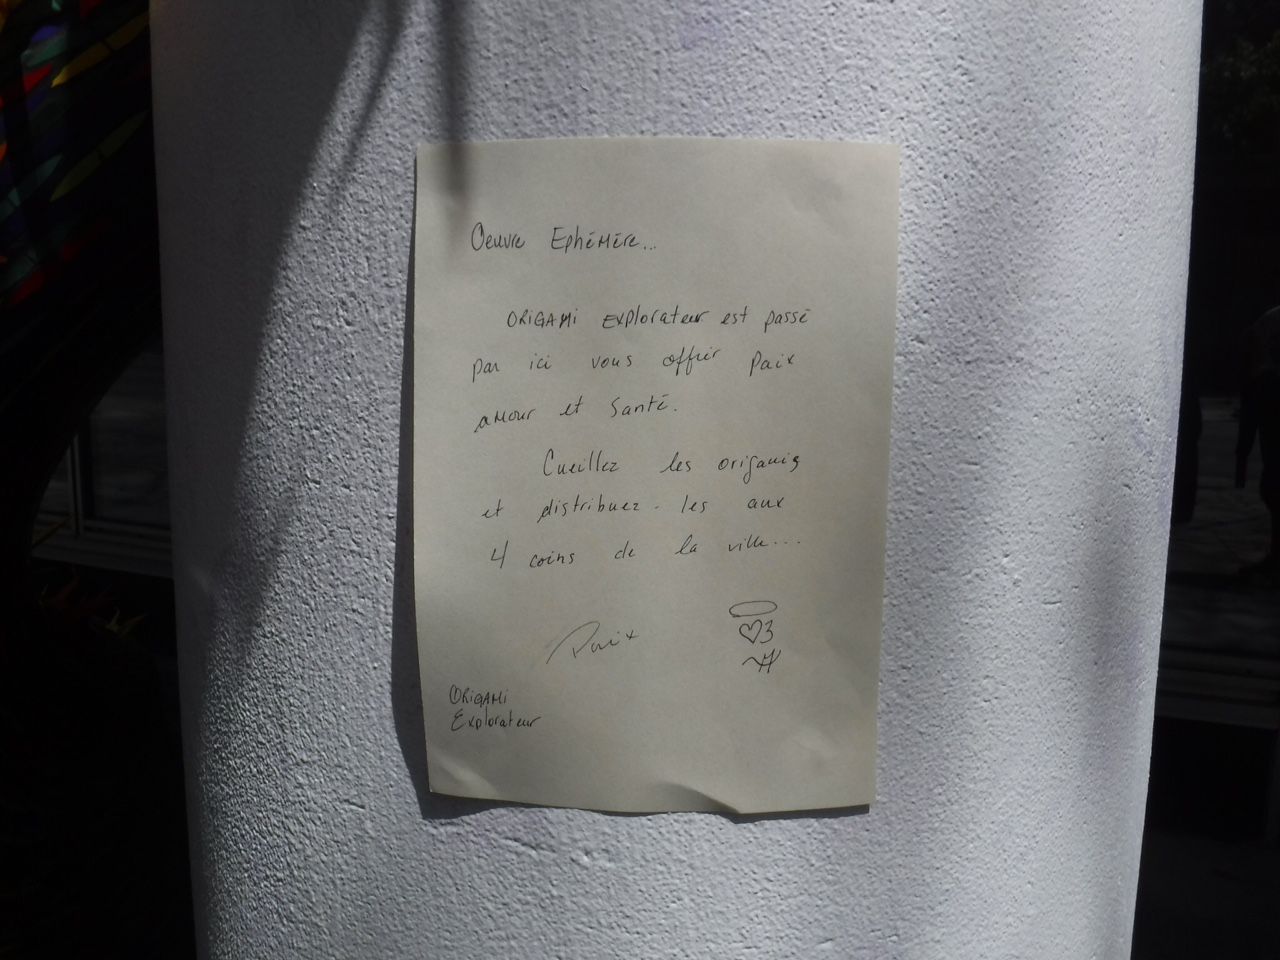 Oeuvre Ephémère...
ORIGAMI Explorateur est passé
par ici vous offrir Paix
amour et Santé.
Cueillez les origamis
et distribuez-les aux
4 coins de la ville...
Paix
ORIGAMI
Explorateur